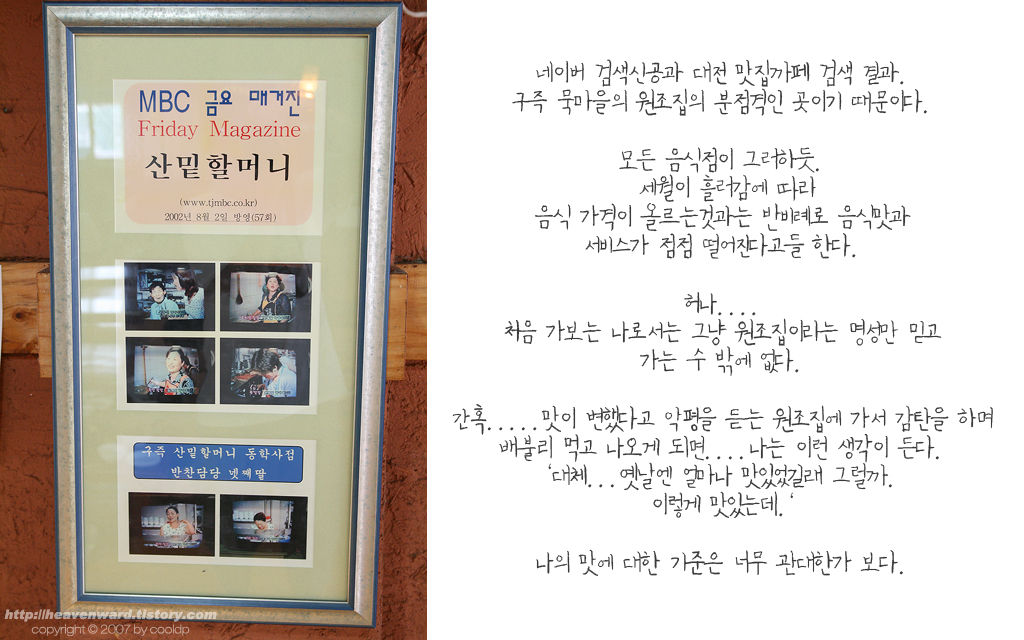 MBC 금요 매거진
Friday Magazine
산밑할머니
(www.tjmbc.co.kr)
2002년 8월 2일 방영(57회)
구즉 산밑할머니 동학사점
반찬담당 넷째딸
http://heavenward.tistory.com
copyright © 2007 by cooldp
네이버 검색신공과 대전 맛집까페 검색 결과.
구즉 묵마을의 원조집의 분점격인 곳이기 때문이다.
모든 음식점이 그러하듯.
세월이 흘러감에 따라
음식 가격이 올르는것과는 반비례로 음식맛과
서비스가 점점 떨어진다고들 한다.
허나....
처음 가보는 나로서는 그냥 원조집이라는 명성만 믿고
가는 수 밖에 없다.
간혹.....맛이 변했다고 악평을 듣는 원조집에 가서 감탄을 하며
배불리 먹고 나오게 되면....나는 이런 생각이 든다.
'대체...옛날엔 얼마나 맛있었길래 그럴까.
이렇게 맛있는데.'
나의 맛에 대한 기준은 너무 관대한가 보다.